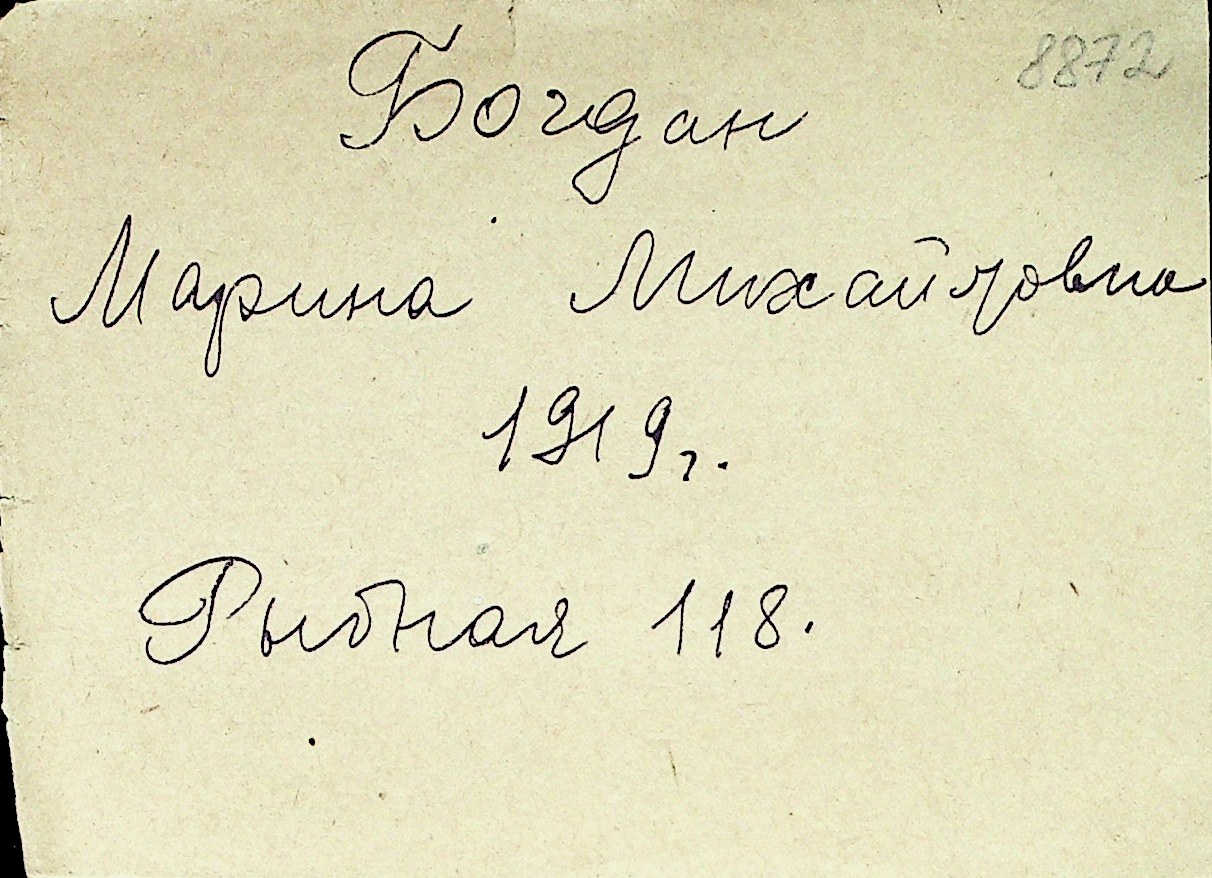 8872
Богдан
Марина Михайловна
1919г.
Рыбная 118.